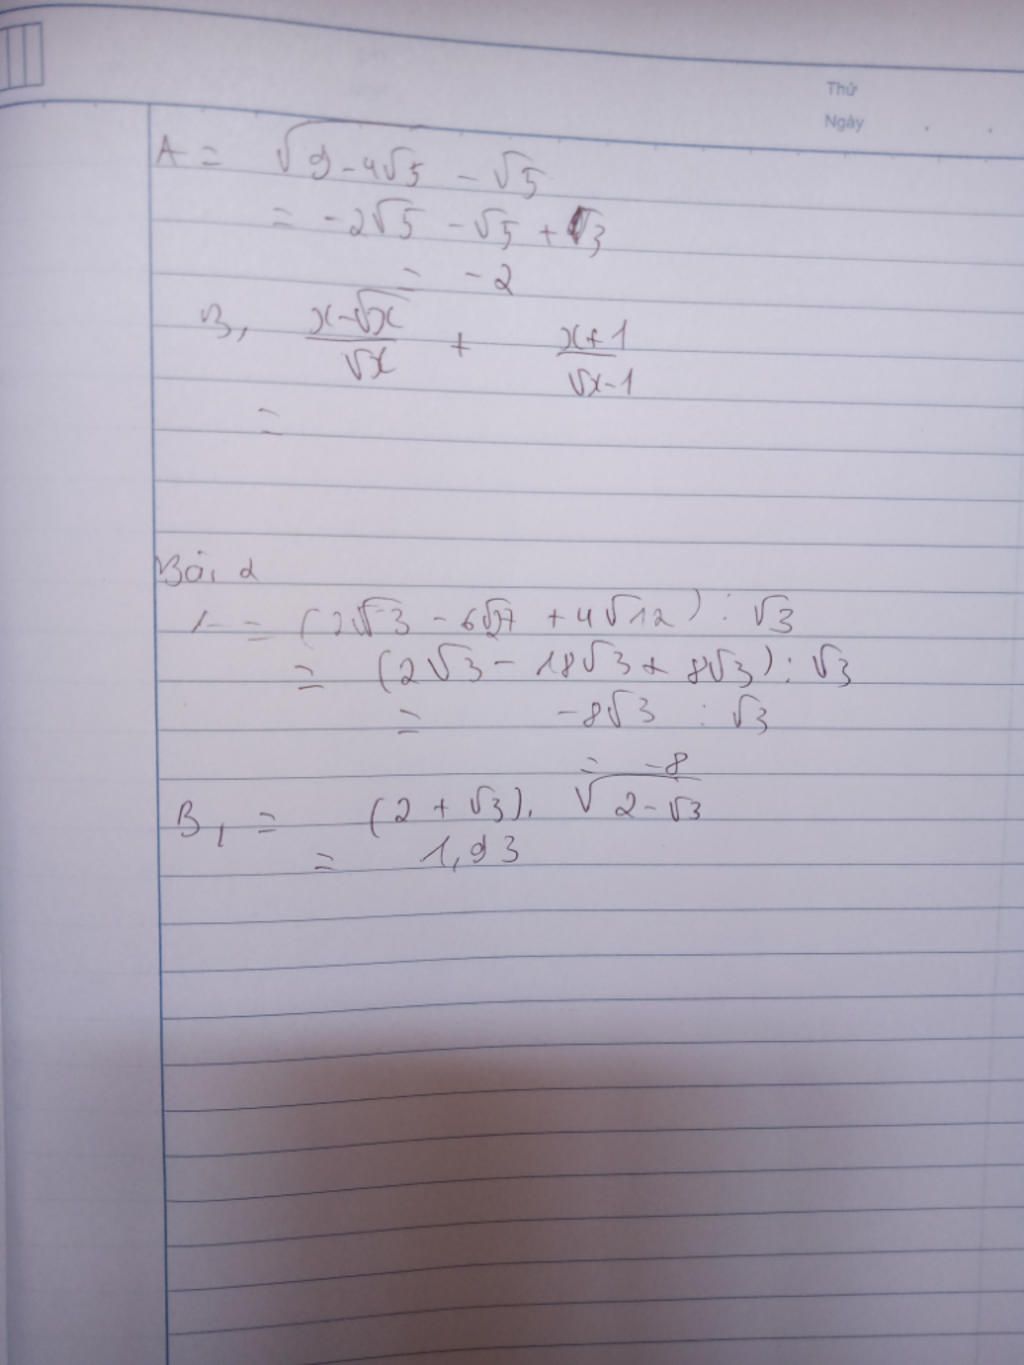 Thứ
Ngày
A = √(9-4√5) - √5
= -2√5 - √5 + √3
= -2
B, (x-√x)/√x + (x+1)/(√x-1)
=
Bài 2
= (2√3 - 6√27 + 4√12) : √3
= (2√3 - 18√3 + 8√3) : √3
= -8√3 : √3
= -8
B, = (2 + √3). √(2-√3)
= 1,93